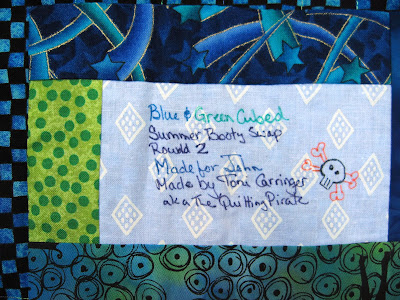 Blue & Green Cubed
Summer Booty Swap
Round 2
Made for John
Made by Toni Carringer
aka The Quilting Pirate